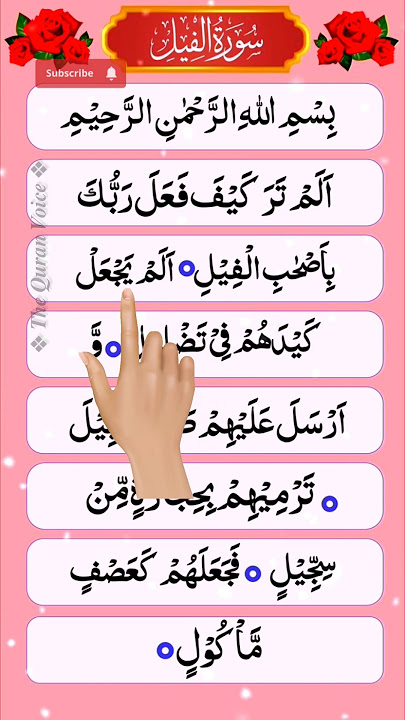 سُورَةُ الْفِيْل
Subscribe
بِسْمِ اللهِ الرَّحْمٰنِ الرَّحِيْمِ
اَلَمْ تَرَ كَيْفَ فَعَلَ رَبُّكَ
بِاَصْحٰبِ الْفِيْلِ اَلَمْ يَجْعَلْ
كَيْدَهُمْ فِيْ وَّ
اَرْسَلَ عَلَيْهِمْ
تَرْمِيْهِمْ مِّنْ
سِجِّيْلٍ فَجَعَلَهُمْ كَعَصْفٍ
مَّاْكُوْلٍ
The Quran Voice